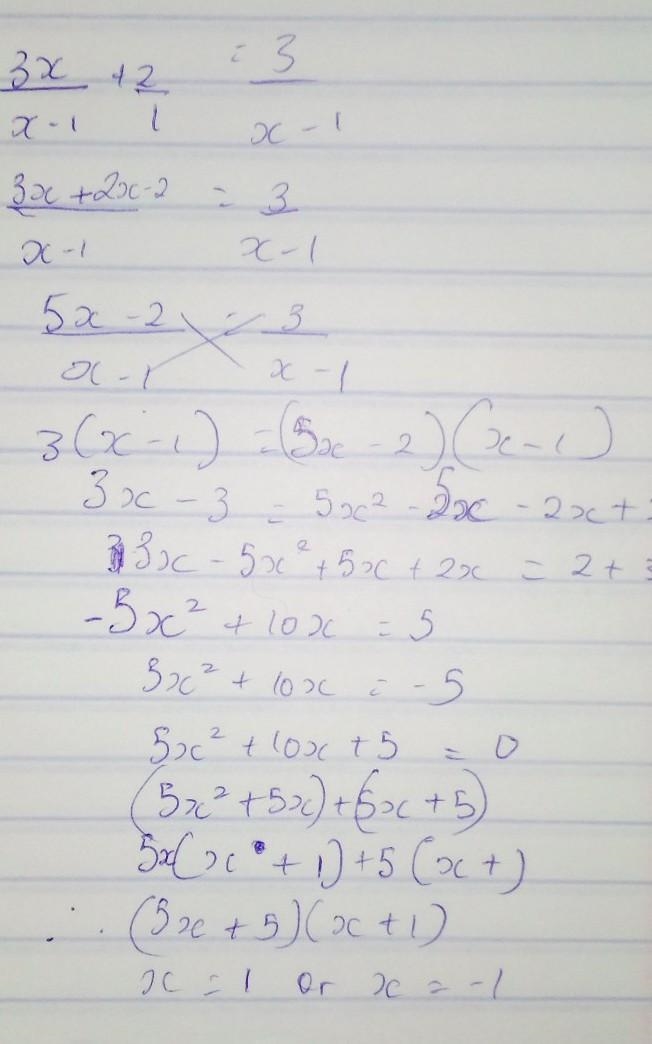 3x/x-1 + 2/1 = 3/x-1
3x+2x-2/x-1 = 3/x-1
5x-2/x-1 = 3/x-1
3(x-1) = (5x-2)(x-1)
3x-3 = 5x²-5x-2x+
3x-5x²+5x+2x = 2+3
-5x²+10x = 5
5x²+10x = -5
5x²+10x+5 = 0
(5x²+5x)+(5x+5)
5x(x+1)+5(x+)
∴ (5x+5)(x+1)
x = 1 or x = -1